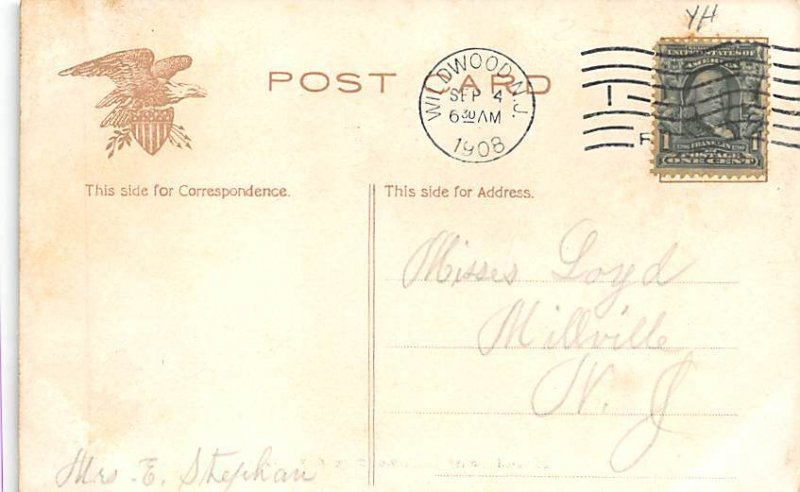 YH
POST CARD
WILDWOOD, N.J.
SEP 4
6 30 AM
1908
UNITED STATES OF
AMERICA
1 FRANKLIN 1
POSTAGE
ONE CENT
This side for Correspondence.
This side for Address.
Misses Loyd
Millville
N. J
Mrs. E. Stephan